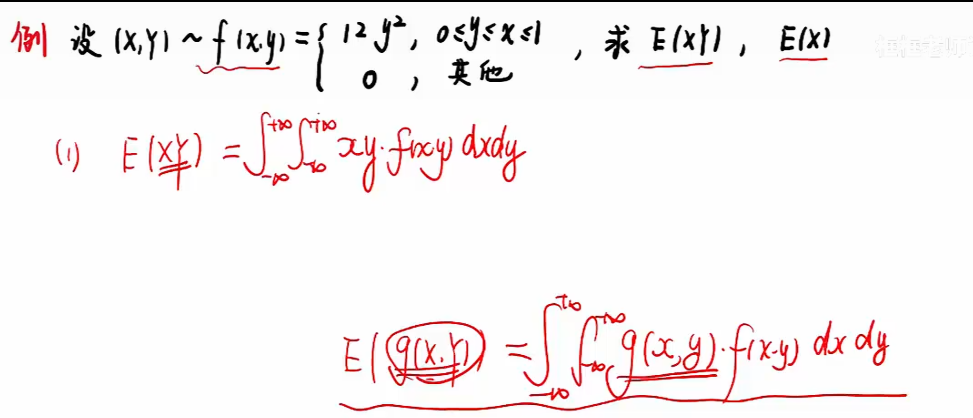 例 设 (X,Y) ~ f(x,y) = { 12y², 0≤y≤x≤1 , 求 E(XY), E(X)
0 , 其他
(1) E(XY) = ∫_{-∞}^{+∞} ∫_{-∞}^{+∞} xy·f(x,y) dxdy
E(g(X,Y)) = ∫_{-∞}^{+∞} ∫_{-∞}^{+∞} g(x,y)·f(x,y) dxdy